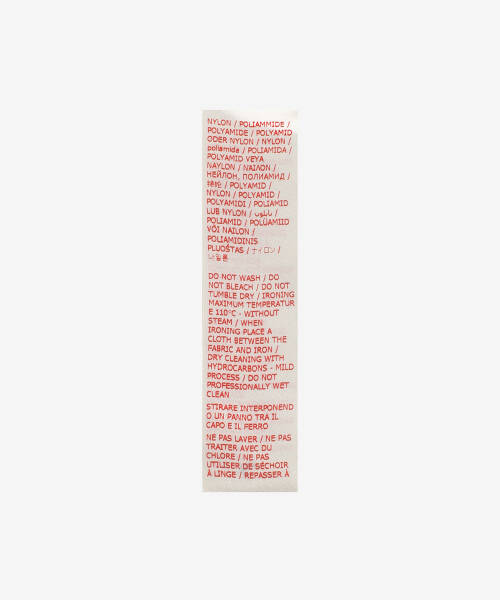 NYLON / POLIAMMIDE /
POLYAMIDE / POLYAMID
ODER NYLON / NYLON /
poliamida / POLIAMIDA /
POLYAMID VEYA
NAYLON / ΝΑΙΛΟΝ /
НЕЙЛОН, ПОЛИАМИД /
锦纶 / POLYAMID /
NYLON / POLYAMID /
POLYAMIDI / POLIAMID
LUB NYLON / نايلون /
POLIAMID / POLÜAMIID
VÕI NAILON /
POLIAMIDINIS
PLUOŠTAS / ナイロン /
나일론
DO NOT WASH / DO
NOT BLEACH / DO NOT
TUMBLE DRY / IRONING
MAXIMUM TEMPERATUR
E 110°C - WITHOUT
STEAM / WHEN
IRONING PLACE A
CLOTH BETWEEN THE
FABRIC AND IRON /
DRY CLEANING WITH
HYDROCARBONS - MILD
PROCESS / DO NOT
PROFESSIONALLY WET
CLEAN
STIRARE INTERPONEND
O UN PANNO TRA IL
CAPO E IL FERRO
NE PAS LAVER / NE PAS
TRAITER AVEC DU
CHLORE / NE PAS
UTILISER DE SÉCHOIR
À LINGE / REPASSER À